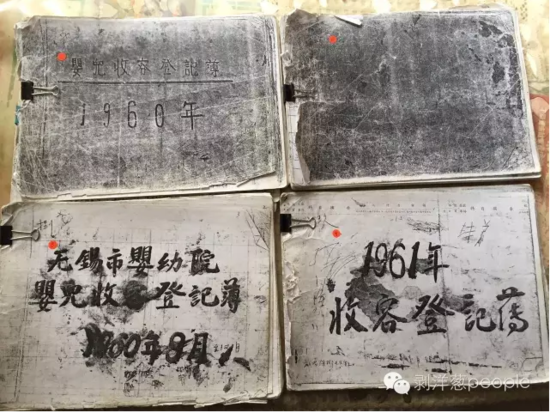 嬰兒收容登記薄
1960年
无锡市嬰幼院
嬰兒收容登記薄
1960年8月
1961年
收容登記薄
剥洋葱people